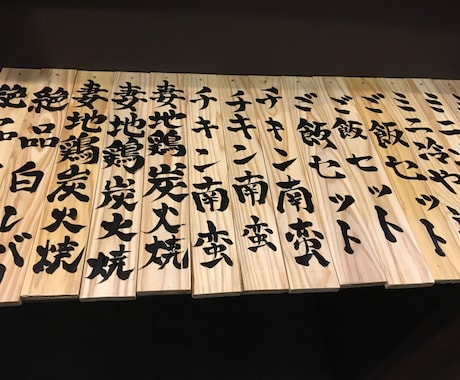 ミニ
ミニ冷や
ご飯セット
ご飯セット
ご飯セット
チキン南蛮
チキン南蛮
チキン南蛮
妻地鶏炭火焼
妻地鶏炭火焼
妻地鶏炭火焼
絶品白レバ
絶品